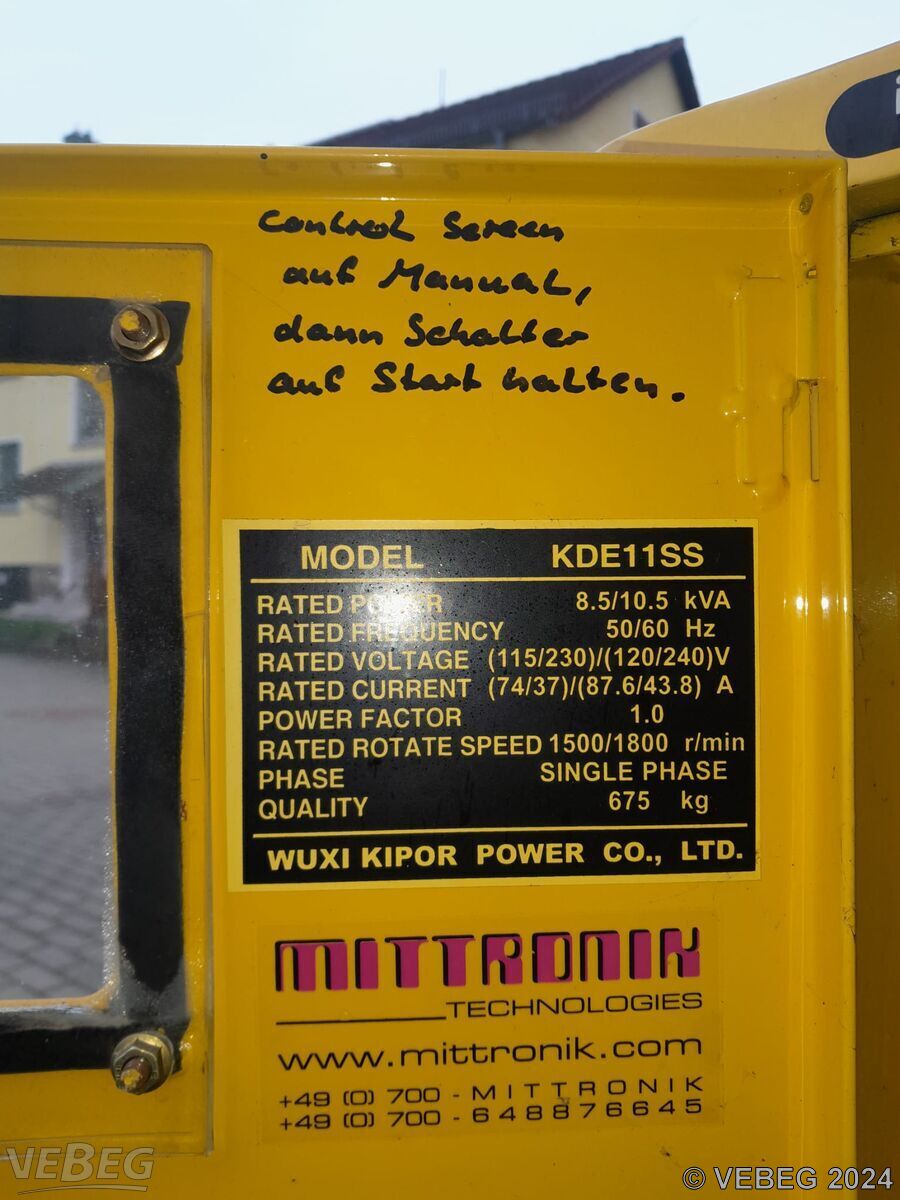 Control Screen
auf Manual,
dann Schalter
auf Start halten.
MODEL KDE11SS
RATED POWER 8.5/10.5 kVA
RATED FREQUENCY 50/60 Hz
RATED VOLTAGE (115/230)/(120/240)V
RATED CURRENT (74/37)/(87.6/43.8) A
POWER FACTOR 1.0
RATED ROTATE SPEED 1500/1800 r/min
PHASE SINGLE PHASE
QUALITY 675 kg
WUXI KIPOR POWER CO., LTD.
MITTRONIK
TECHNOLOGIES
www.mittronik.com
+49 (0) 700 - MITTRONIK
+49 (0) 700 - 648876645
VEBEG
© VEBEG 2024